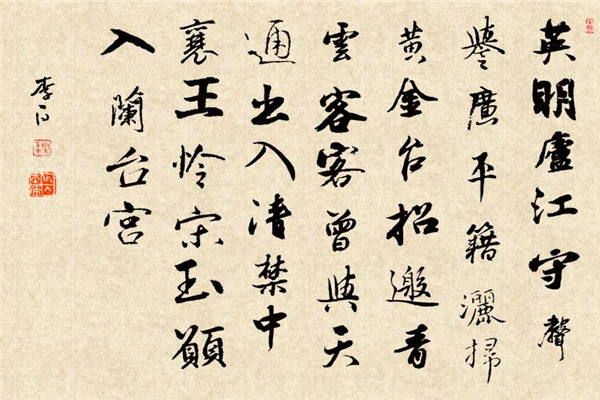 英明廬江守聲
譽廣平籍灑掃
黄金台招邀青
雲客客曾與天
通出入清禁中
襄王怜宋玉願
入蘭台宮
李白